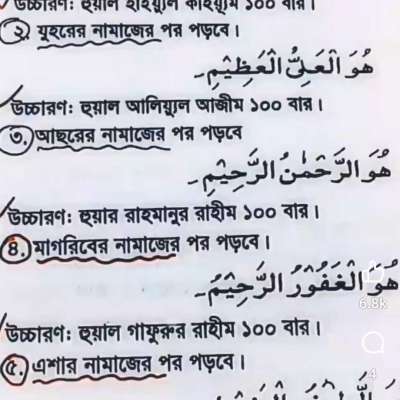 উচ্চারণ: হুয়াল হাইয়্যুল কাইয়্যুম ১০০ বার।
২. যুহরের নামাজের পর পড়বে।
هُوَ الْعَلِىُّ الْعَظِيْمُ۔
উচ্চারণ: হুয়াল আলিয়্যুল আজীম ১০০ বার।
৩. আছরের নামাজের পর পড়বে
هُوَ الرَّحْمٰنُ الرَّحِيْمُ۔
উচ্চারণ: হুয়ার রাহমানুর রাহীম ১০০ বার।
৪. মাগরিবের নামাজের পর পড়বে।
هُوَ الْغَفُوْرُ الرَّحِيْمُ۔
6.8k
উচ্চারণ: হুয়াল গাফুরুর রাহীম ১০০ বার।
৫. এশার নামাজের পর পড়বে।
4